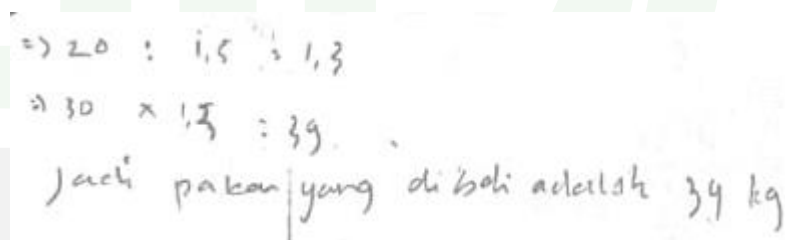 => 20 : 1,5 : 1,3
=> 30 x 1,3 : 39.
Jadi pakan yang dibeli adalah 39 kg